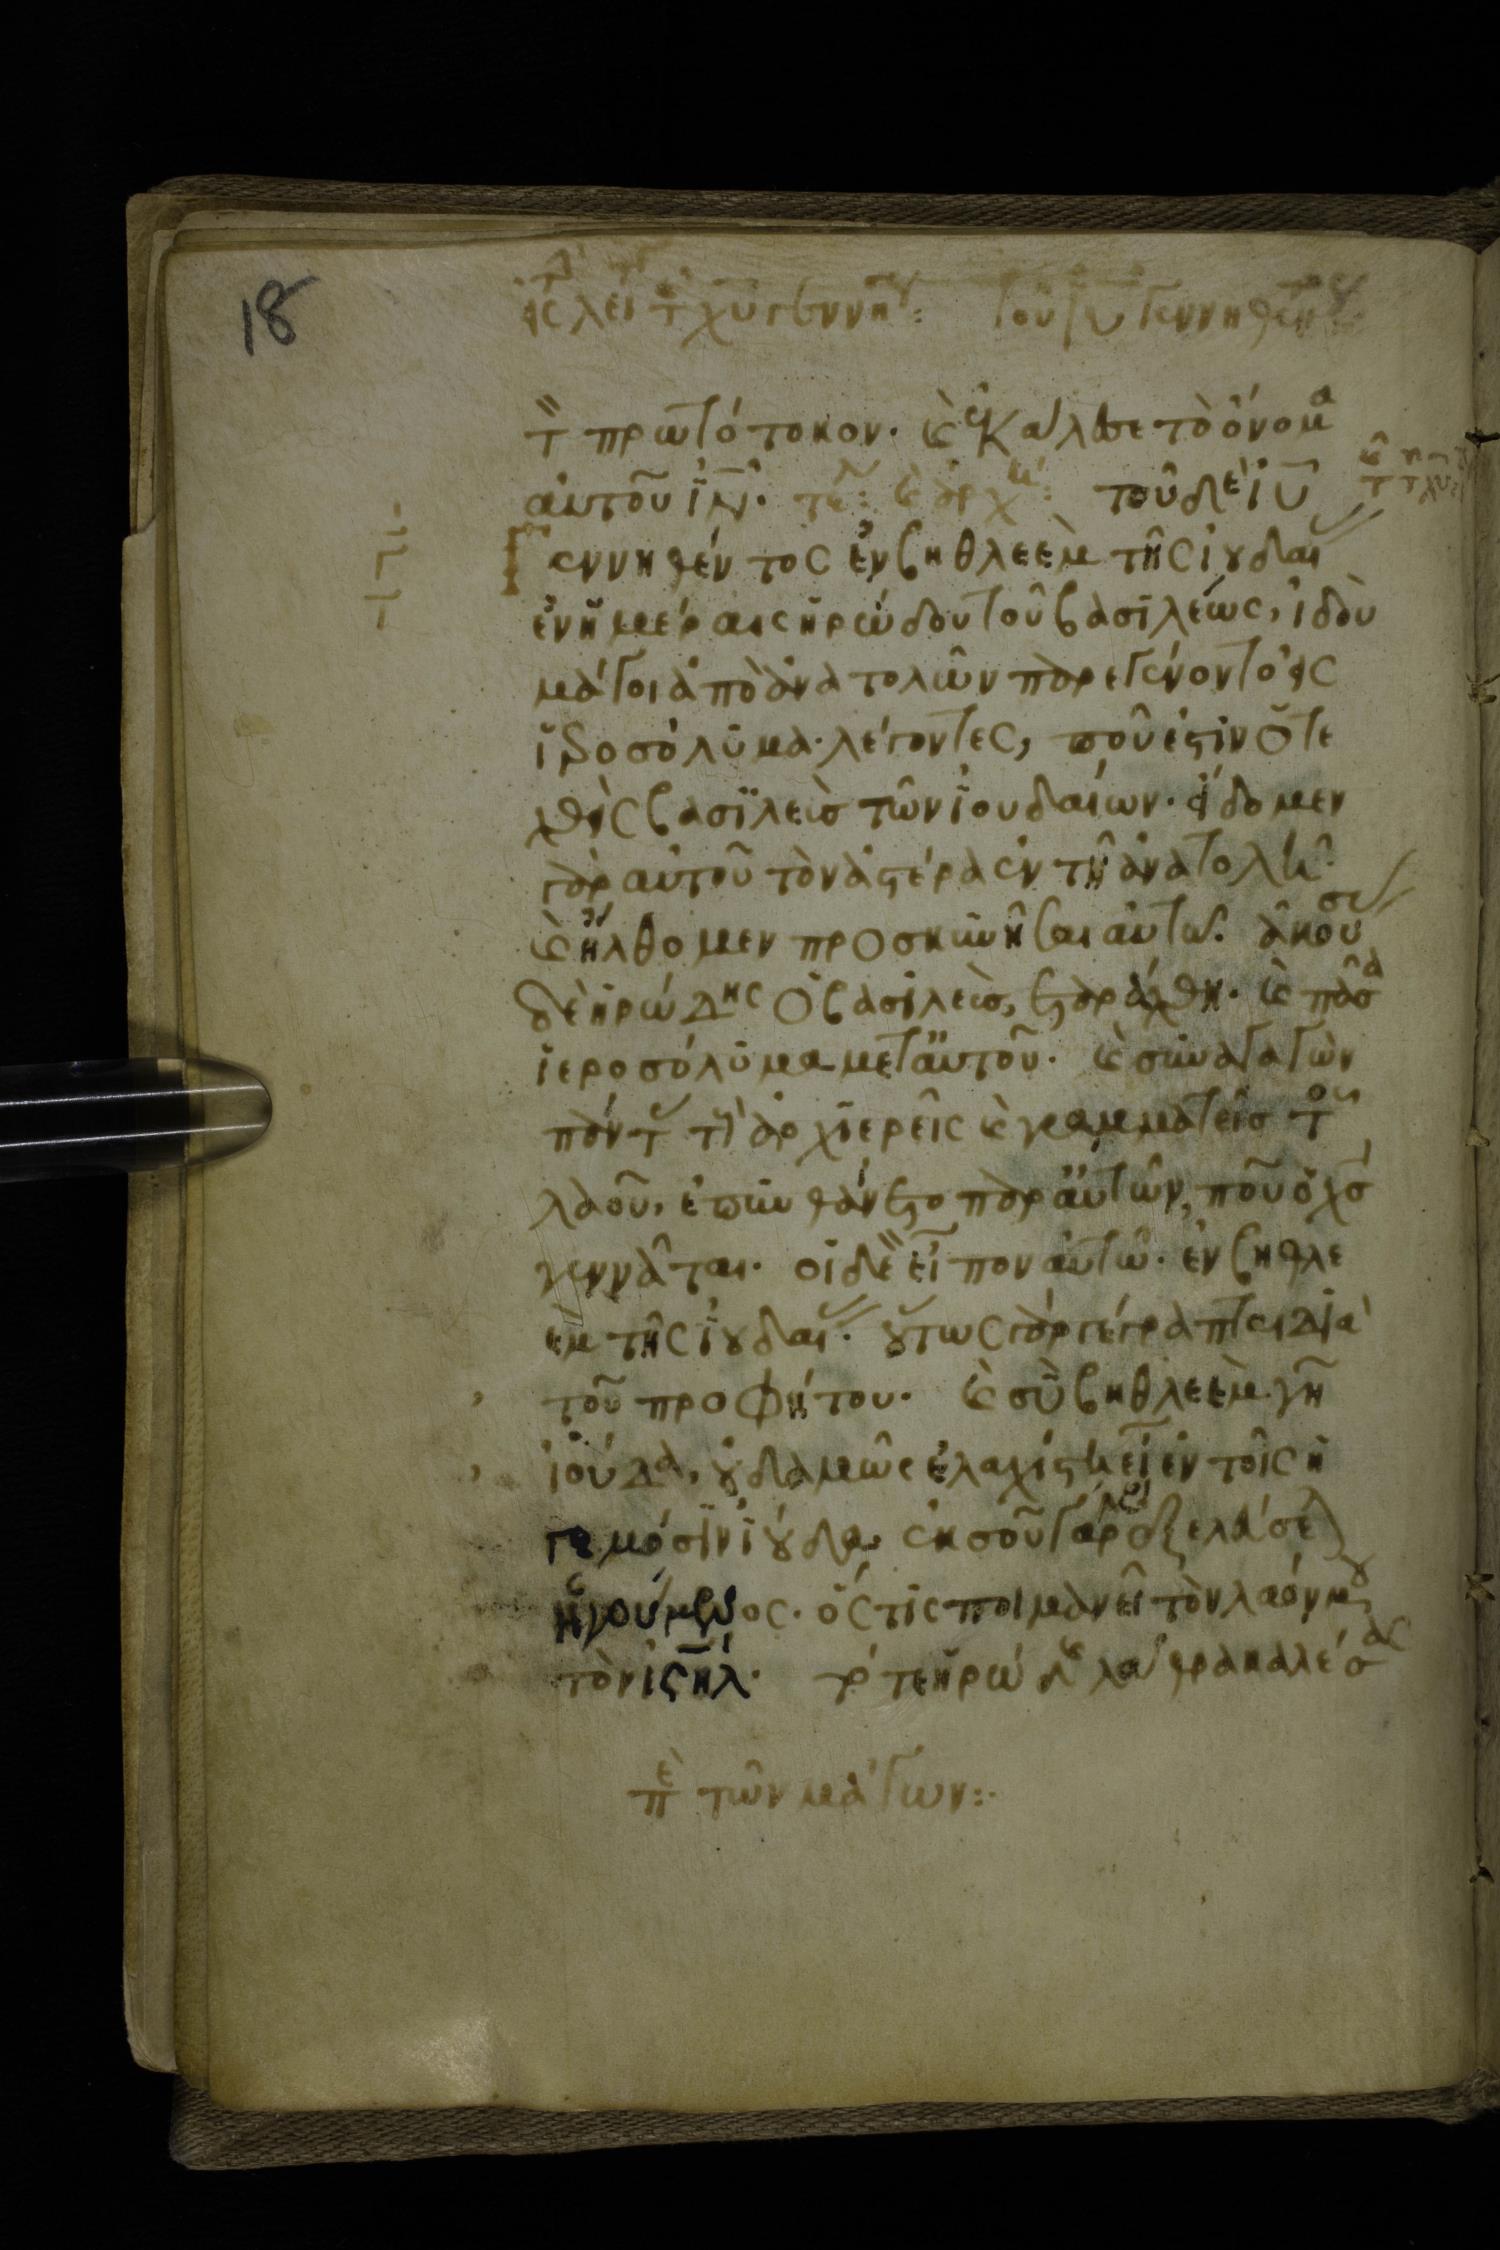 18
τὸν πρωτότοκον· καὶ ἐκάλεσε τὸ ὄνομα
αὐτοῦ ἰν̅· τε καὶ ἀρχὴ : τοῦ δὲ ἰυ̅
γεννηθέντος ἐν βηθλεὲμ τῆς ἰουδαίας
ἐν ἡμέραις ἡρώδου τοῦ βασιλέως, ἰδοὺ
μάγοι ἀπὸ ἀνατολῶν παρεγένοντο εἰς
ἱεροσόλυμα λέγοντες, ποῦ ἐστὶν ὁ τε
χθεὶς βασιλεὺς τῶν ἰουδαίων· εἴδομεν
γὰρ αὐτοῦ τὸν ἀστέρα ἐν τῇ ἀνατολῇ·
καὶ ἤλθομεν προσκυνῆσαι αὐτῷ· ἀκούσας
δὲ ἡρώδης ὁ βασιλεὺς, ἐταράχθη· καὶ πᾶσα
ἱεροσόλυμα μετ αὐτοῦ· καὶ συναγαγὼν
πάντας τοὺς ἀρχιερεῖς καὶ γραμματεῖς τοῦ
λαοῦ, ἐπυνθάνετο παρ αὐτῶν, ποῦ ὁ χς̅
γεννᾶται· οἱ δὲ εἶπον αὐτῷ· ἐν βηθλε
ὲμ τῆς ἰουδαίας· οὕτως γὰρ γέγραπται διὰ
τοῦ προφήτου· καὶ σὺ βηθλεὲμ γῆ
ἰούδα, οὐδαμῶς ἐλαχίστη εἶ ἐν τοῖς ἡ
γεμόσιν ἰούδα· ἐκ σοῦ γάρ μοι ἐξελεύσεται
ἡγούμενος· ὅστις ποιμανεῖ τὸν λαόν μου
τὸν ἰσ̅η̅λ· τότε ἡρώδης λάθρα καλέσας
πε τῶν μάγων :·